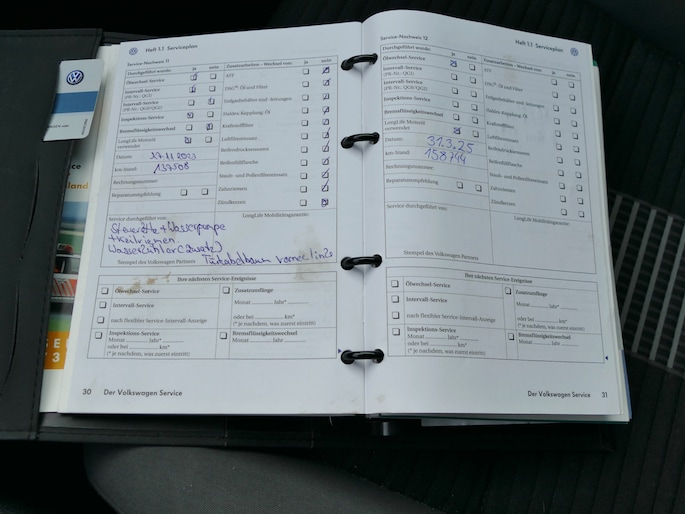 Heft 1.1 Serviceplan
Service-Nachweis 11
Durchgeführt wurde: ja nein
Ölwechsel-Service
Intervall-Service
(PR-Nr.: QG1)
Intervall-Service
(PR-Nr.: QG0/QG2)
Inspektions-Service
Bremsflüssigkeitswechsel
LongLife Motoröl
verwendet
Datum: 27.11.2023
km-Stand: 137508
Rechnungsnummer:
Reparaturempfehlung
Zusatzarbeiten - Wechsel von: ja nein
ATF
DSG® Öl und Filter
Erdgasbehälter und -leitungen
Haldex-Kupplung: Öl
Kraftstofffilter
Luftfiltereinsatz
Reifendruckssensoren
Reifenfüllflasche
Staub- und Pollenfiltereinsatz
Zahnriemen
Zündkerzen
Service durchgeführt von:
LongLife Mobilitätsgarantie:
Steuerkette + Wasserpumpe
+ Keilriemen
Wasserkühler (Zusatz)
Türkabelbaum vorne links
Stempel des Volkswagen Partners
Ihre nächsten Service-Ereignisse
Ölwechsel-Service
Intervall-Service
nach flexibler Service-Intervall-Anzeige
Inspektions-Service
Monat Jahr*
oder bei km*
(* je nachdem, was zuerst eintritt)
Zusatzumfänge
Monat Jahr*
oder bei km*
(* je nachdem, was zuerst eintritt)
Bremsflüssigkeitswechsel
Monat Jahr
30 Der Volkswagen Service
Heft 1.1 Serviceplan
Service-Nachweis 12
Durchgeführt wurde: ja nein
Ölwechsel-Service
Intervall-Service
(PR-Nr.: QG1)
Intervall-Service
(PR-Nr.: QG0/QG2)
Inspektions-Service
Bremsflüssigkeitswechsel
LongLife Motoröl
verwendet
Datum: 31.3.25
km-Stand: 158744
Rechnungsnummer:
Reparaturempfehlung
Zusatzarbeiten - Wechsel von: ja nein
ATF
DSG® Öl und Filter
Erdgasbehälter und -leitungen
Haldex-Kupplung: Öl
Kraftstofffilter
Luftfiltereinsatz
Reifendruckssensoren
Reifenfüllflasche
Staub- und Pollenfiltereinsatz
Zahnriemen
Zündkerzen
Service durchgeführt von:
LongLife Mobilitätsgarantie:
Stempel des Volkswagen Partners
Ihre nächsten Service-Ereignisse
Ölwechsel-Service
Intervall-Service
nach flexibler Service-Intervall-Anzeige
Inspektions-Service
Monat Jahr*
oder bei km*
(* je nachdem, was zuerst eintritt)
Zusatzumfänge
Monat Jahr*
oder bei km*
(* je nachdem, was zuerst eintritt)
Bremsflüssigkeitswechsel
Monat Jahr
Der Volkswagen Service 31